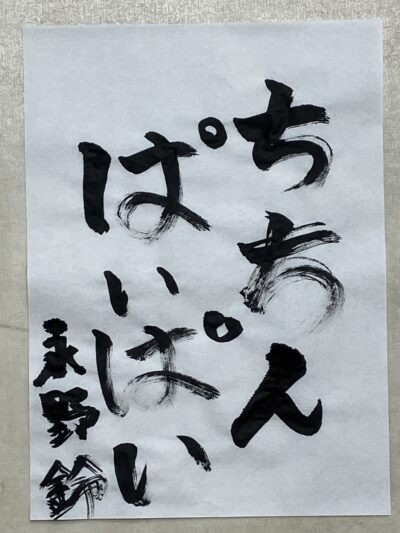 ちちん
ぱいぱい
永野鈴